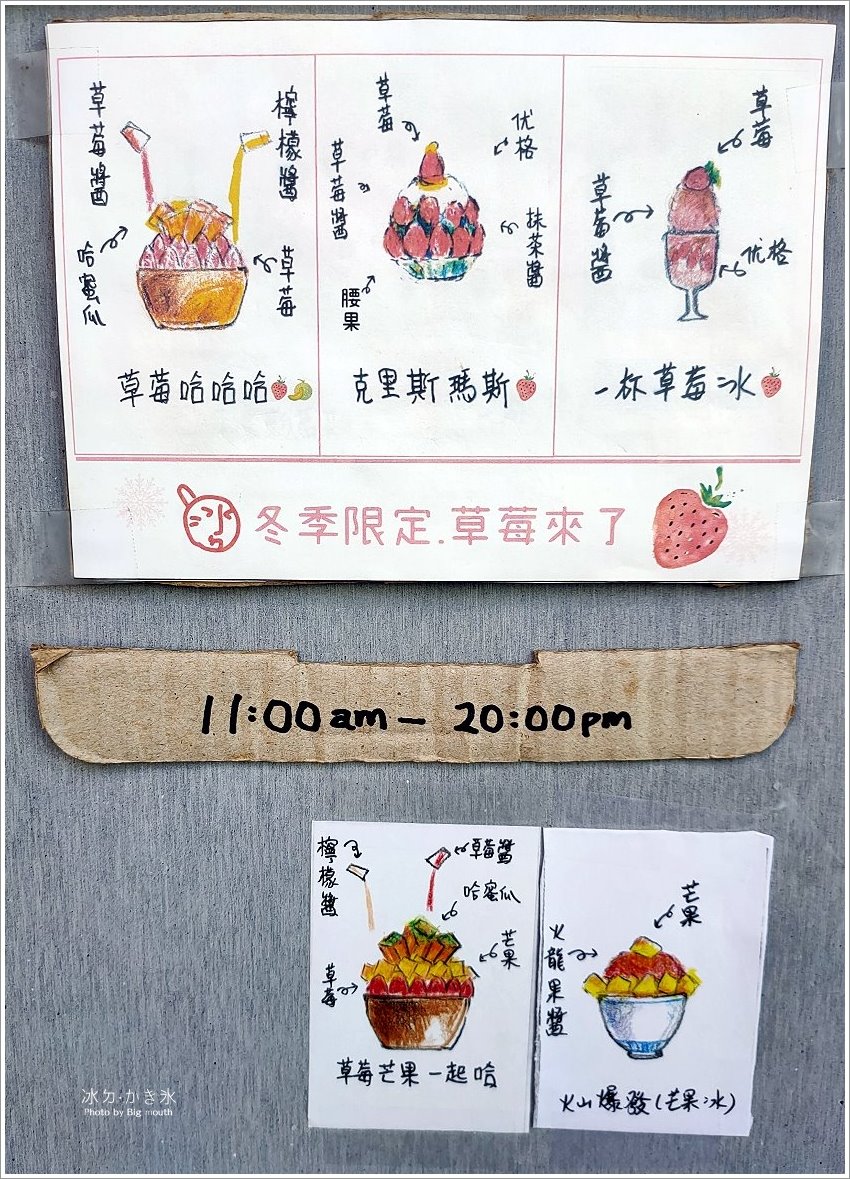 草莓醬
檸檬醬
哈蜜瓜
草莓
草莓哈哈哈
草莓
优格
草莓醬
抹茶醬
腰果
克里斯瑪斯
草莓
草莓醬
优格
一杯草莓冰
冬季限定.草莓來了
11:00am - 20:00pm
檸檬醬
草莓醬
哈蜜瓜
芒果
草莓
草莓芒果一起哈
芒果
火龍果醬
火山爆發(芒果冰)
冰ㄉ·かき氷
Photo by Big mouth